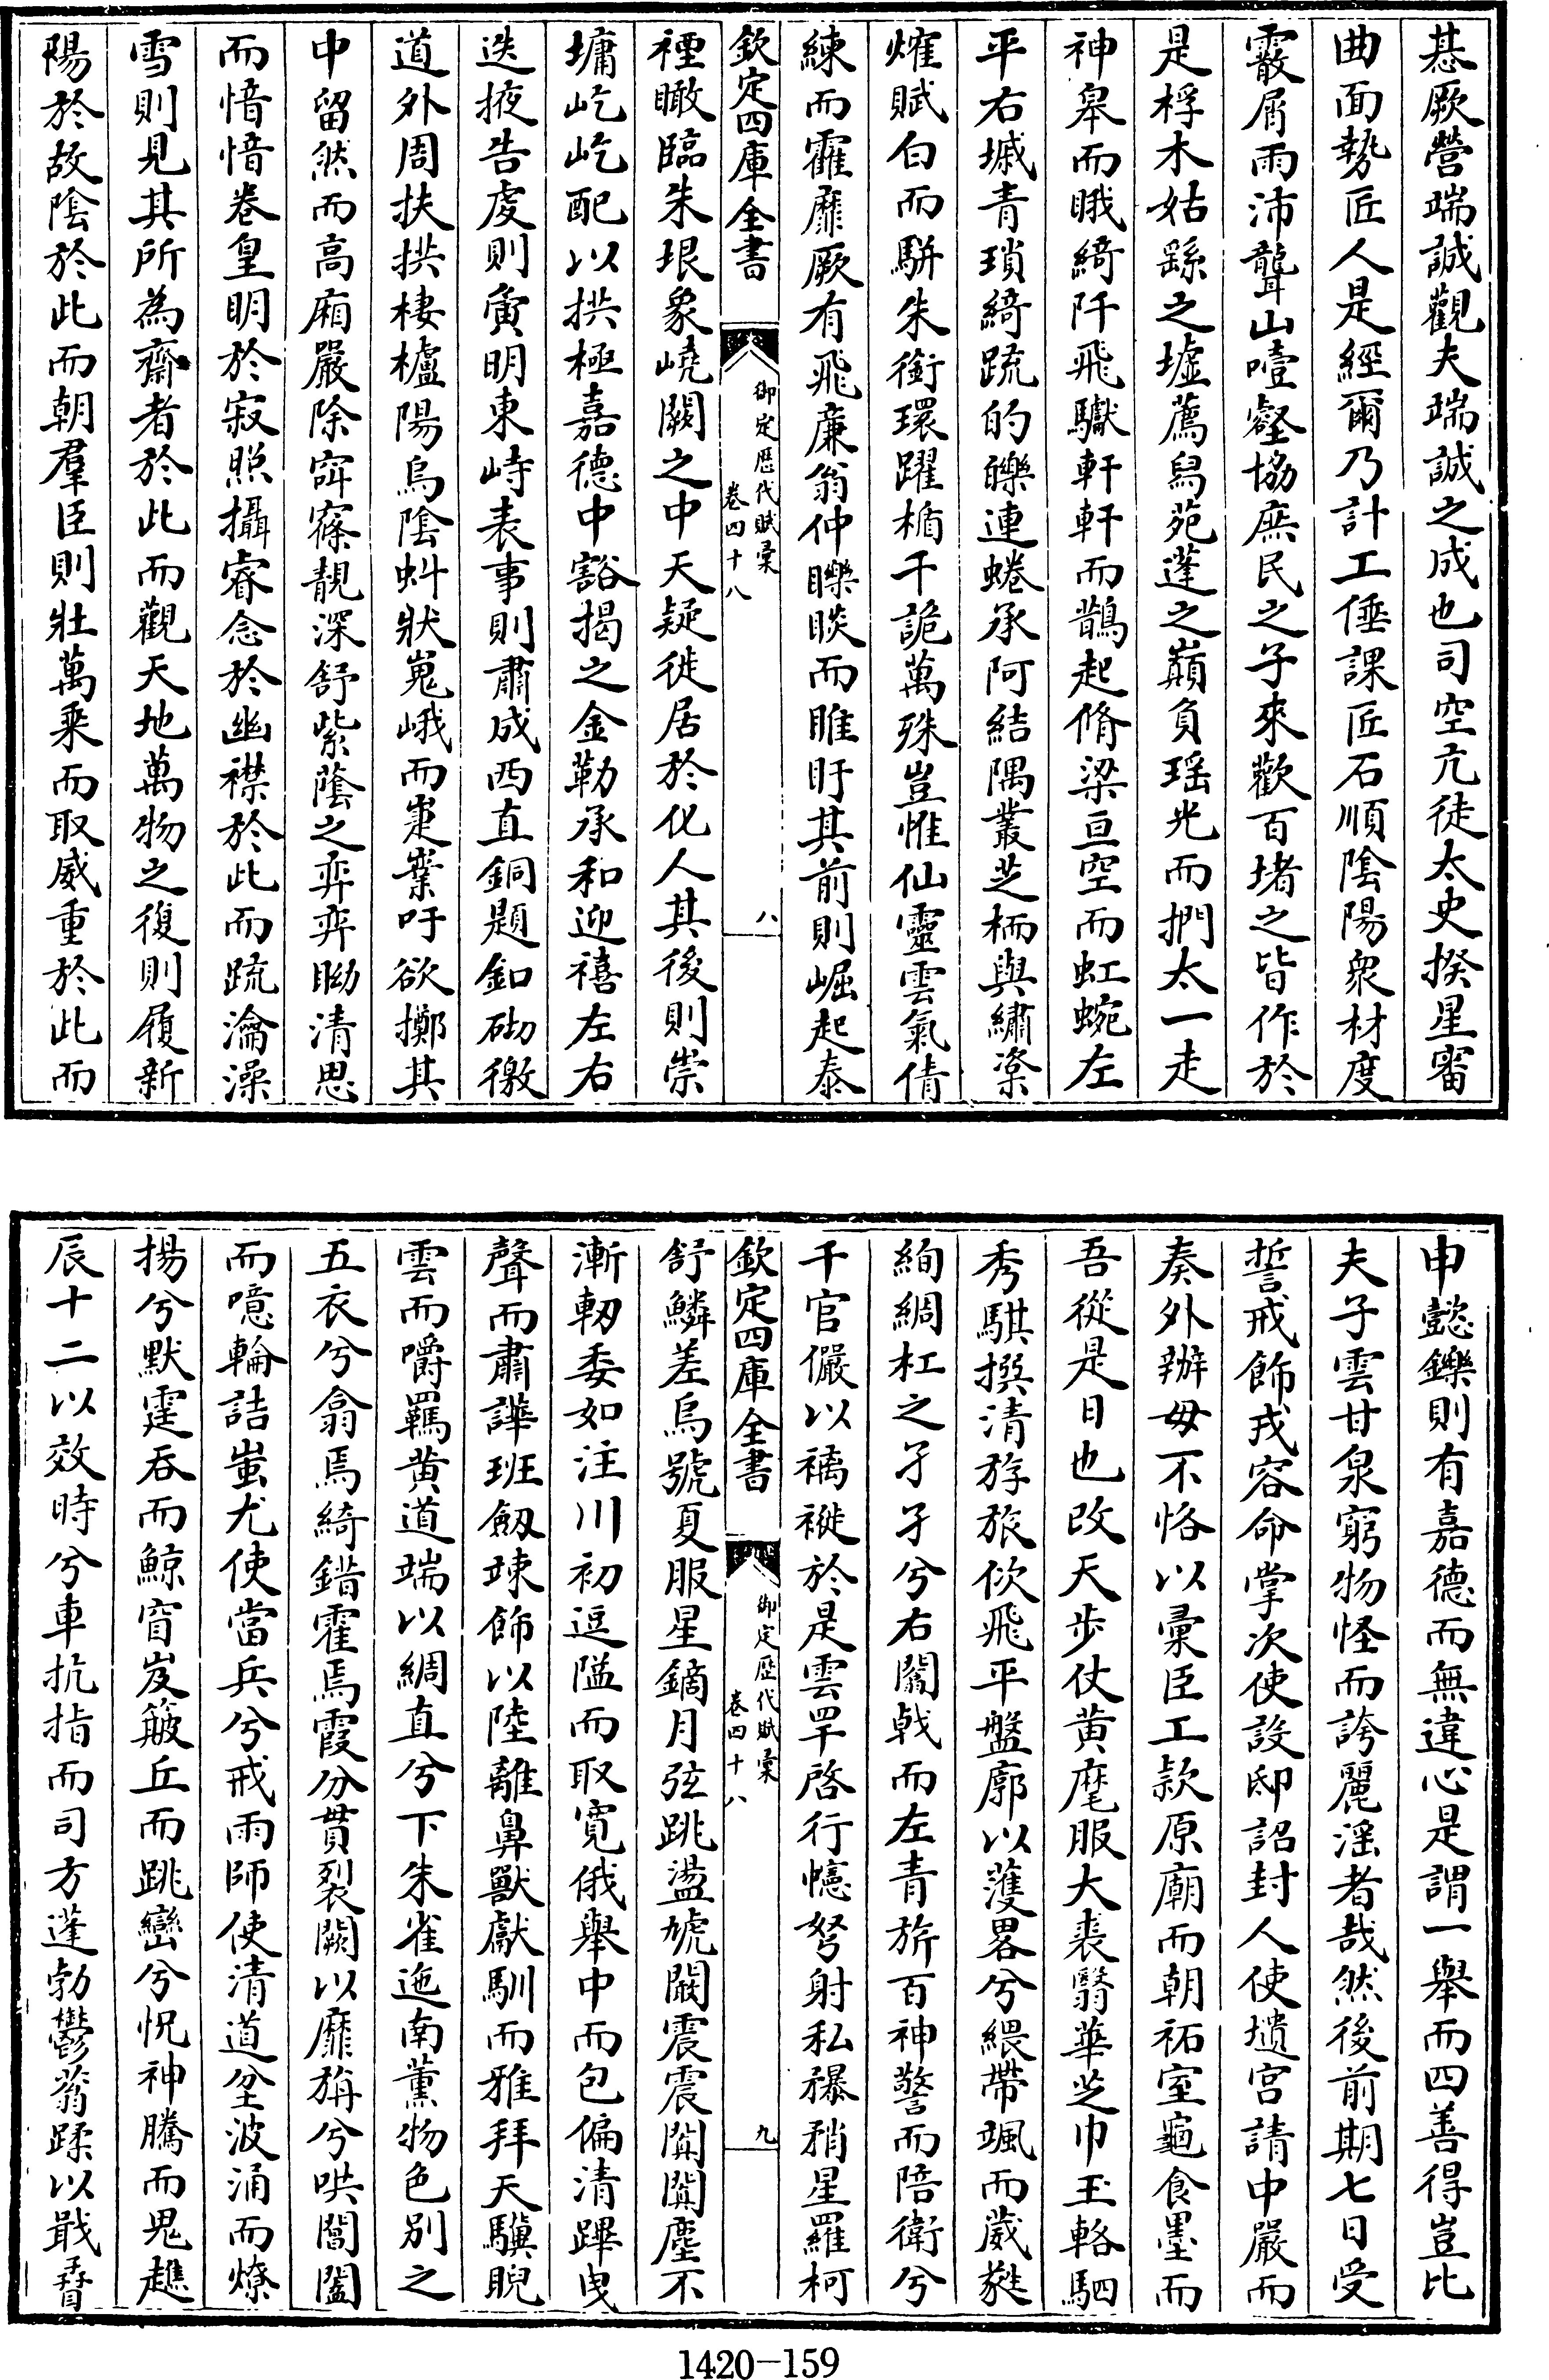 惎厥營端誠觀夫端誠之成也司空亢徒太史揆星審
曲面勢匠人是經爾乃計工倕課匠石順陰陽衆材度
霰屑雨沛聾山噎壑協庶民之子來歡百堵之皆作於
是桴木姑繇之墟薦舄苑蓬之巔負瑶光而捫太一走
神皋而睋綺阡飛轞軒軒而鵲起脩梁亘空而虹蜿左
平右墄青瑣綺疏的皪連蜷承阿結隅叢芝栭與繡楶
爗賦白而駢朱銜環躍楯千詭萬殊豈惟仙靈雲氣倩
練而靃靡厥有飛亷翁仲矆睒而睢盱其前則崛起泰
欽定四庫全書
御定歴代賦彙
卷四十八
八
禋瞰臨朱垠象嶢闕之中天疑徙居於化人其後則崇
墉屹屹配以拱極嘉德中豁揭之金勒承和迎禧左右
迭掖告虔則寅明東峙表事則肅成西直銅題釦砌徼
道外周扶拱棲櫨陽烏陰虯狀嵬峨而嶪吁欲擲其
中留然而高廂嚴除窲靚深舒紫蔭之弈弈眑清思
而愔愔卷皇明於寂照攝睿念於幽襟於此而疏瀹澡
雪則見其所為齋者於此而觀天地萬物之復則履新
陽於故陰於此而朝羣臣則壯萬乘而取威重於此而
申懿鑠則有嘉德而無違心是謂一舉而四善得豈比
夫子雲甘泉窮物怪而誇麗淫者哉然後前期七日受
誓戒飾戎容命掌次使設邸詔封人使壝宫請中嚴而
奏外辦毋不恪以彚臣工款原廟而朝祏室龜食墨而
吾從是日也改天步仗黄麾服大裘翳華芝巾玉輅駟
秀騏撰清斿旅佽飛平盤廓以蒦畧兮緩帶颯而葳蕤
絢綢杠之孑孑兮右闟戟而左青旂百神警而陪衛兮
千官儼以襦褷於是雲罕啓行幰弩射私䂍矟星羅柯
欽定四庫全書
御定歴代賦彙
卷四十八
九
舒鱗差烏號夏服星鏑月弦跳盪虓闞震震闐闐塵不
漸軔委如注川初逗隘而取寛俄舉中而包偏清蹕曳
聲而肅譁班劔竦飾以陸離鼻獸獻馴而雅拜天驥睨
雲而嚼羈黄道端以綢直兮下朱雀迤南薫物色别之
五衣兮翕焉綺錯霍焉霞分貫裂闕以靡旃兮哄閶闔
而噫輪詰蚩尤使當兵兮戒雨師使清道坌波涌而燎
揚兮默霆呑而鯨窅岌簸丘而跳巒兮怳神騰而鬼趭
辰十二以效時兮車抗指而司方蓬勃鬱蓊蹂以戢孴
1420-159